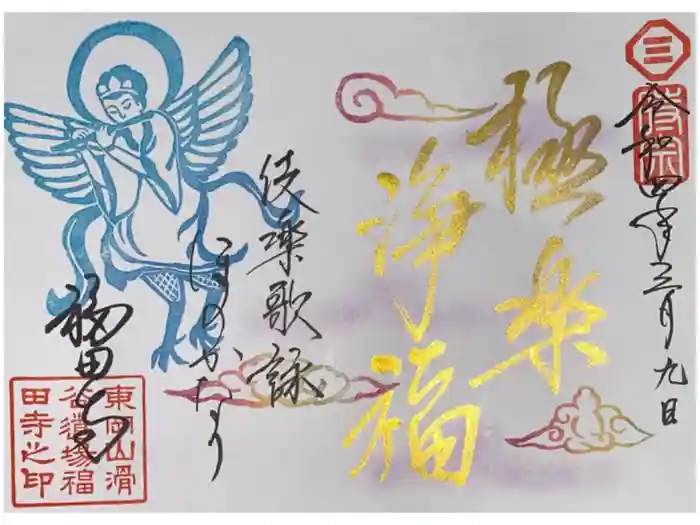 三
奉拝
令和四年三月九日
極楽
浄福
伎楽歌詠
ほのかなり
福田寺
東岡山滑
谷道場福
田寺之印